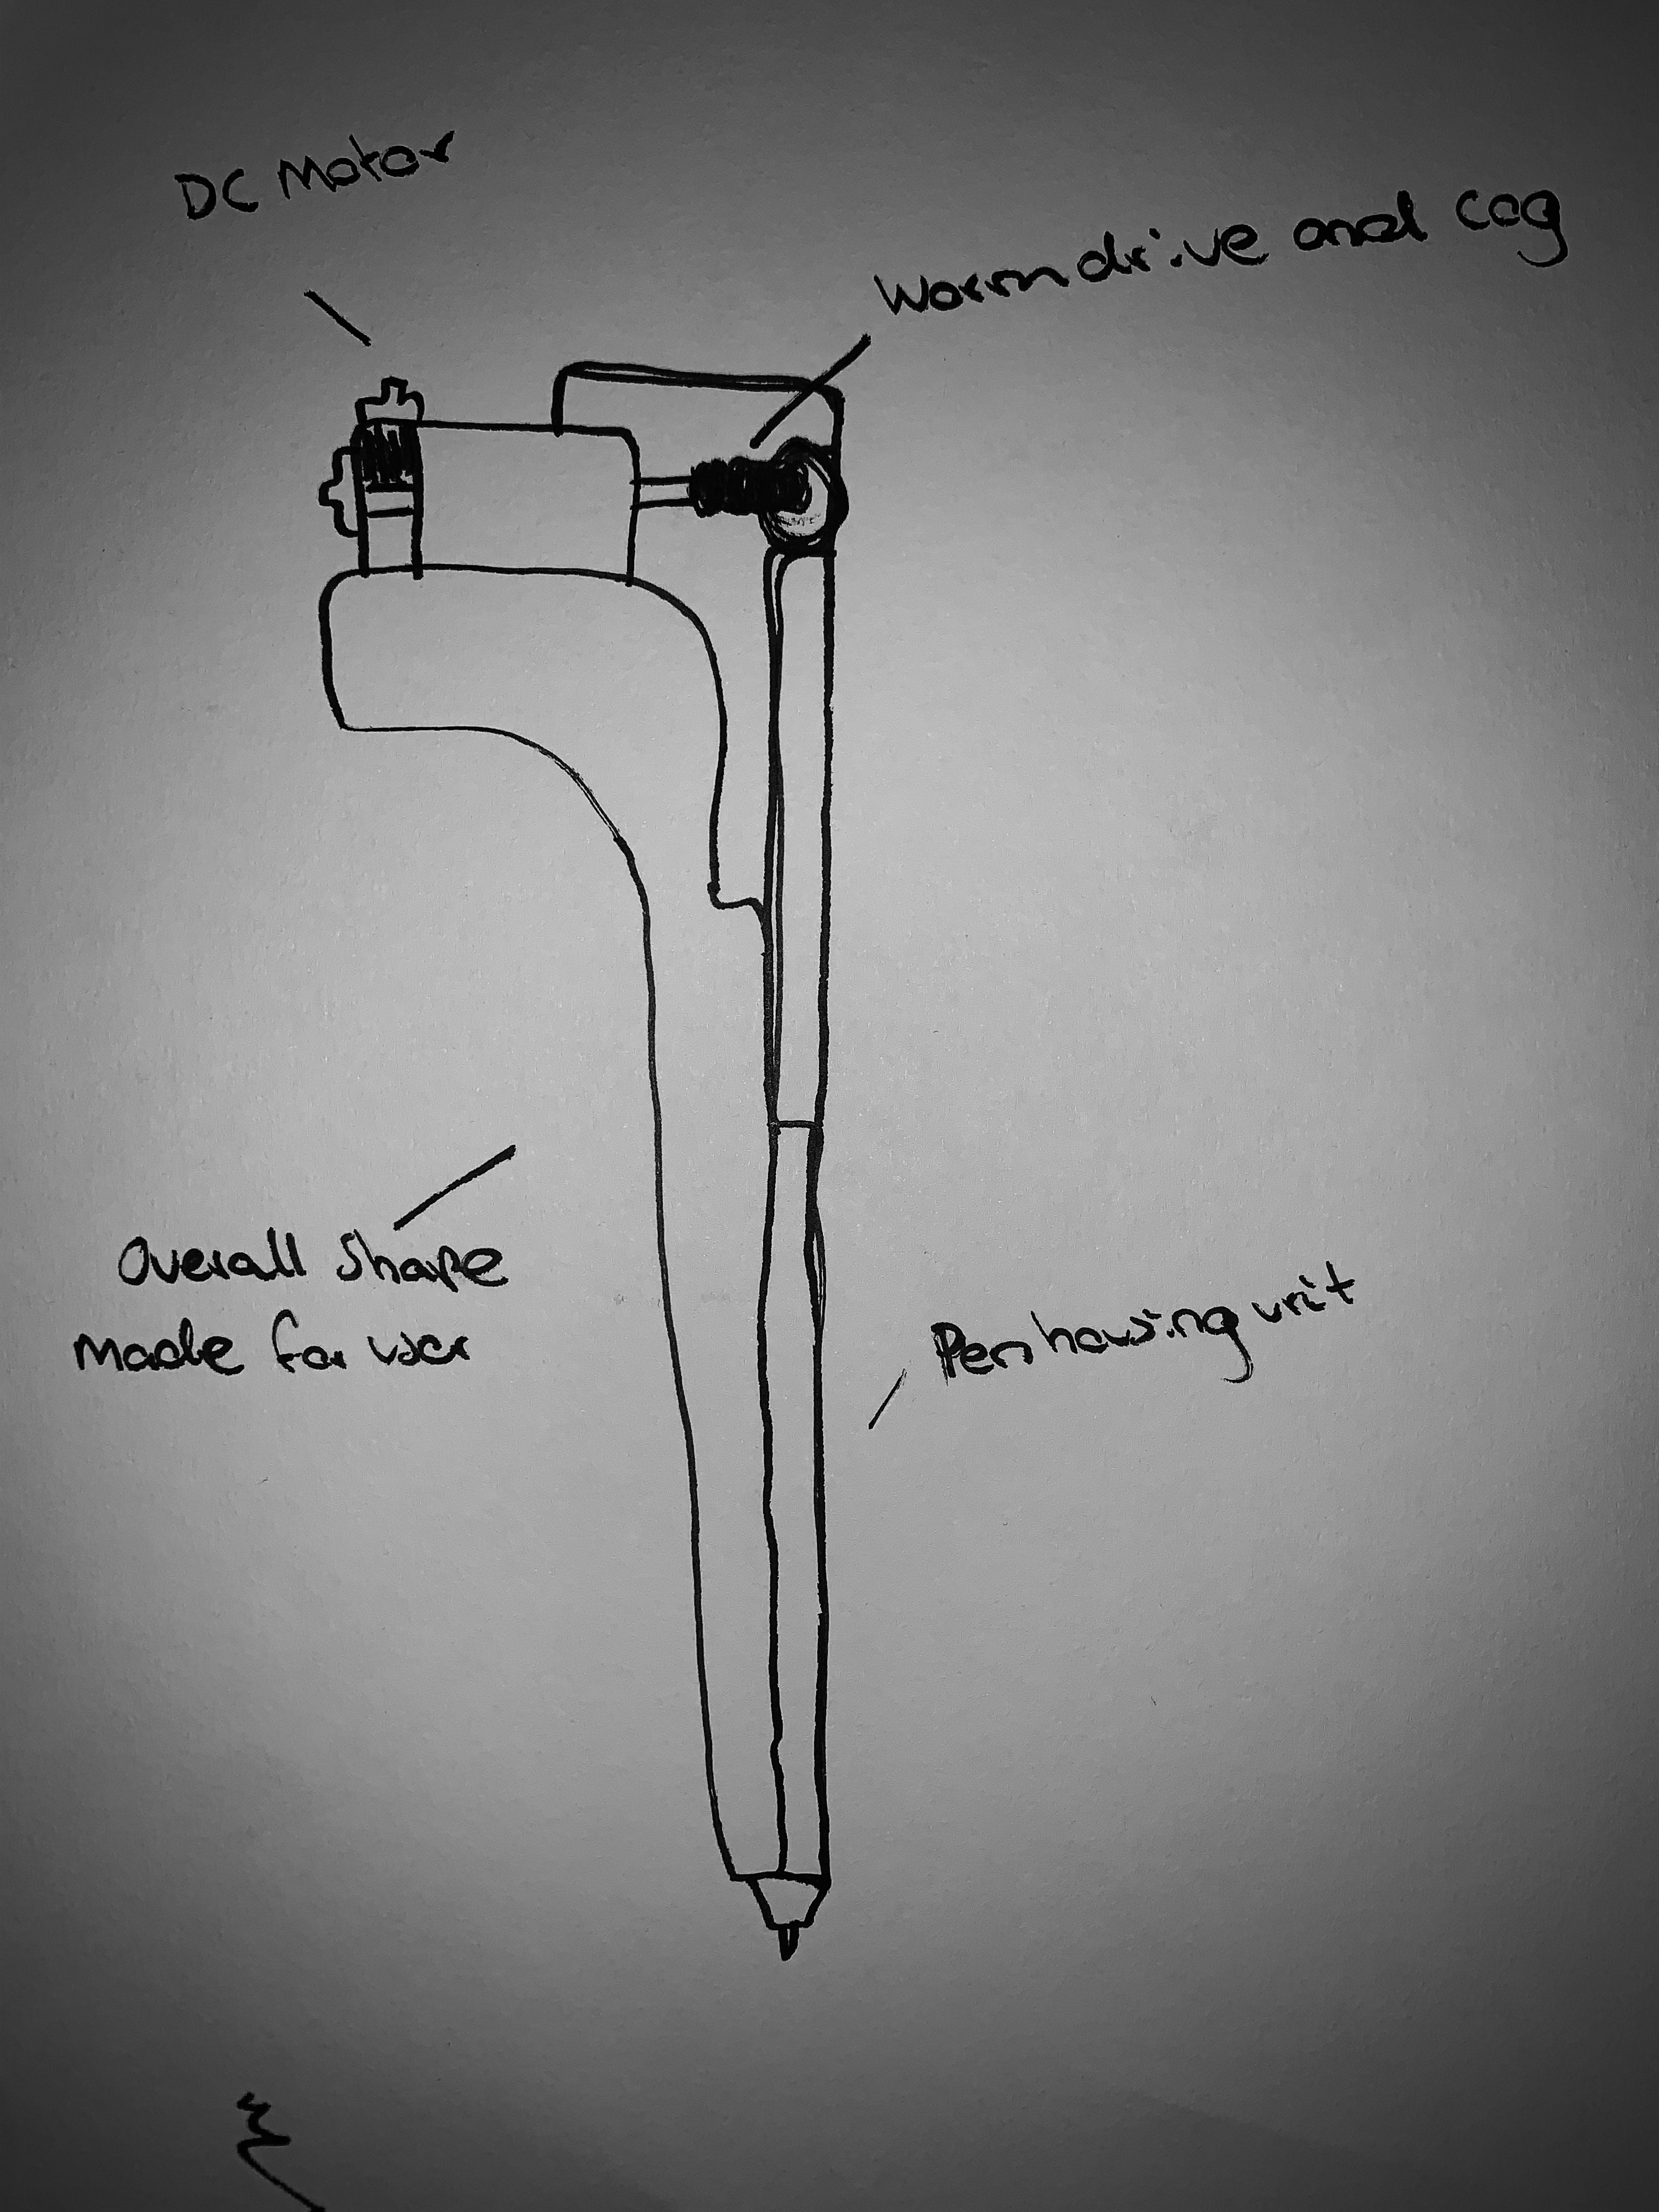 DC Motor
Worm drive and Cog
Overall Shape
Made for user
Pen housing unit